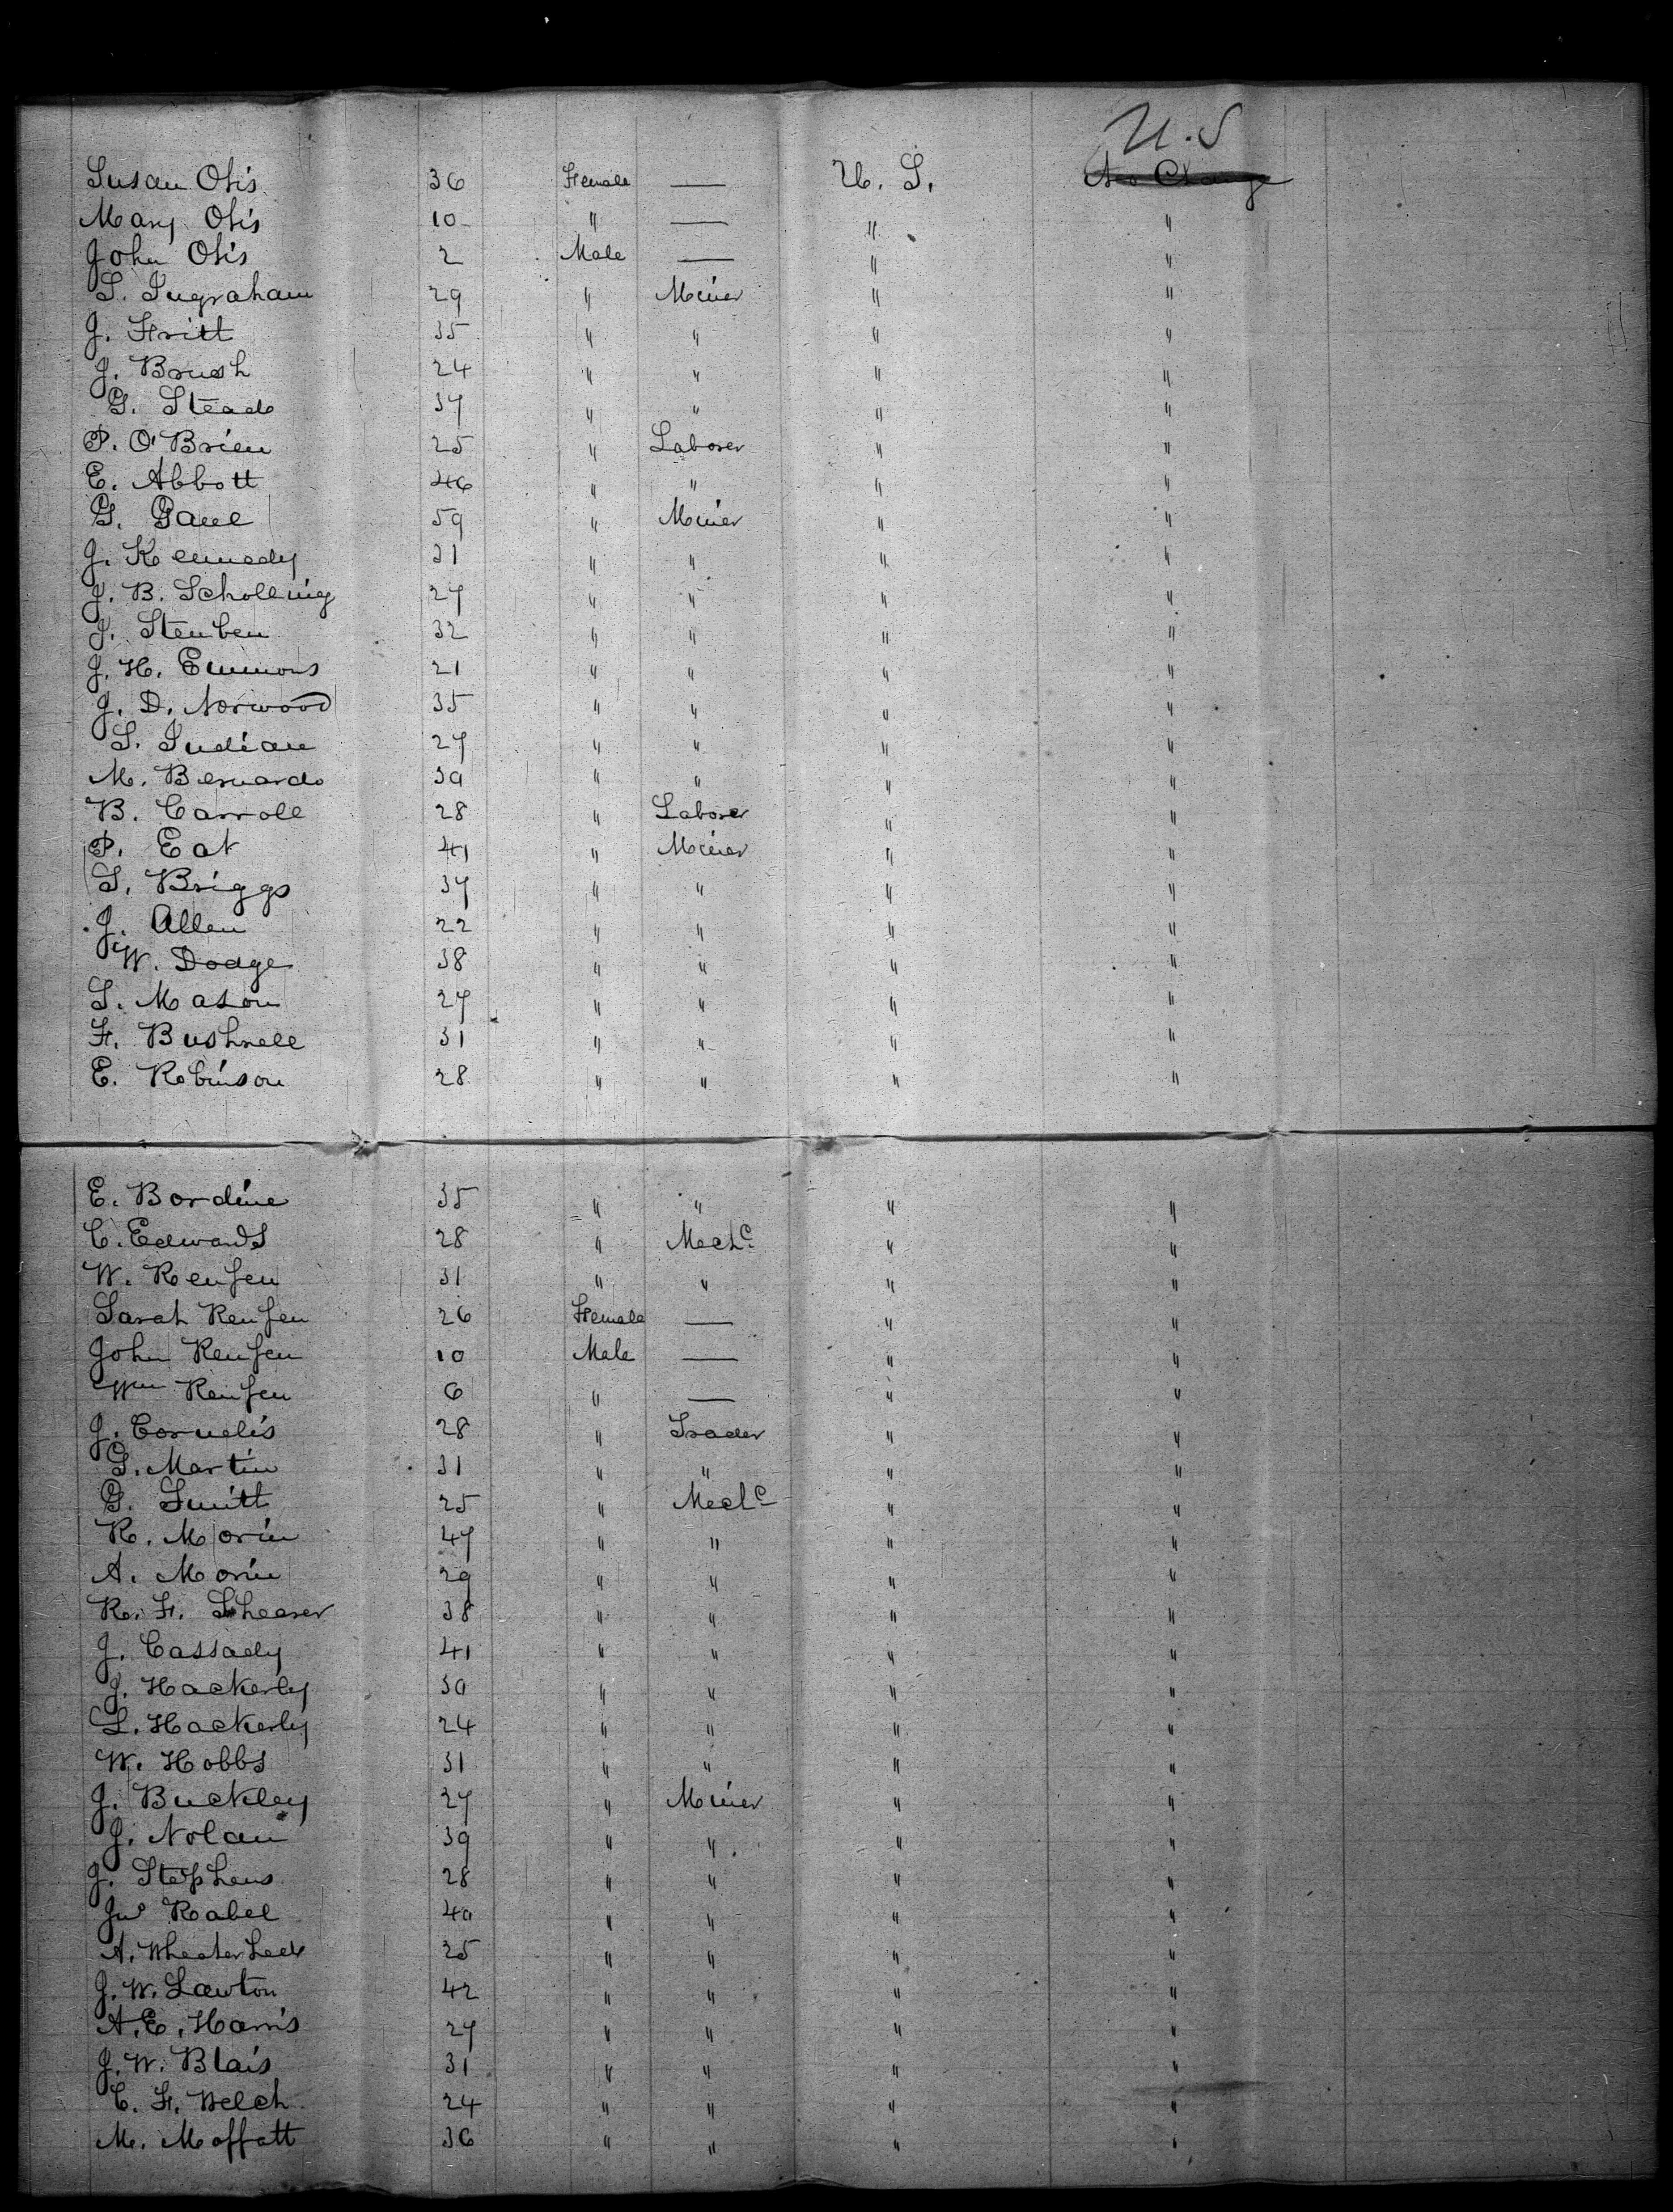 U.S
Susan Otis 36 Female — U. S.
Mary Otis 10 " — " "
John Otis 2 Male — " "
S. Ingraham 29 " Miner " "
J. Fritt 35 " " " "
J. Brush 24 " " " "
G. Stead 37 " " " "
P. O'Brien 25 " Laborer " "
E. Abbott 46 " " " "
G. Gane 59 " Miner " "
J. Kennedy 31 " " " "
J. B. Scholling 27 " " " "
J. Steuben 32 " " " "
J. H. Emmons 21 " " " "
J. D. Norwood 35 " " " "
S. Indian 27 " " " "
M. Bernardo 30 " " " "
B. Carroll 28 " Laborer " "
P. Eat 41 " Miner " "
S. Briggs 37 " " " "
J. Allen 22 " " " "
W. Dodge 38 " " " "
S. Mason 27 " " " "
F. Bushnell 31 " " " "
E. Robinson 28 " " " "
E. Bordine 35 " " " "
C. Edwards 28 " Mechc " "
W. Rensen 31 " " " "
Sarah Rensen 26 Female — " "
John Rensen 10 Male — " "
Wm Rensen 6 " — " "
J. Cornelis 28 " Trader " "
G. Martin 31 " " " "
G. Smitt 25 " Mechc " "
R. Morin 47 " " " "
A. Morin 29 " " " "
R. F. Shearer 38 " " " "
J. Cassady 41 " " " "
J. Hackerly 30 " " " "
L. Hackerly 24 " " " "
W. Hobbs 31 " " " "
J. Buckley 27 " Miner " "
J. Nolan 39 " " " "
J. Stephens 28 " " " "
Jno Rabel 40 " " " "
A. 25 " " " "
J. W. Lawton 42 " " " "
A. E. Harris 27 " " " "
J. W. Blais 31 " " " "
C. F. Welch 24 " " " "
M. Moffatt 36 " " " "